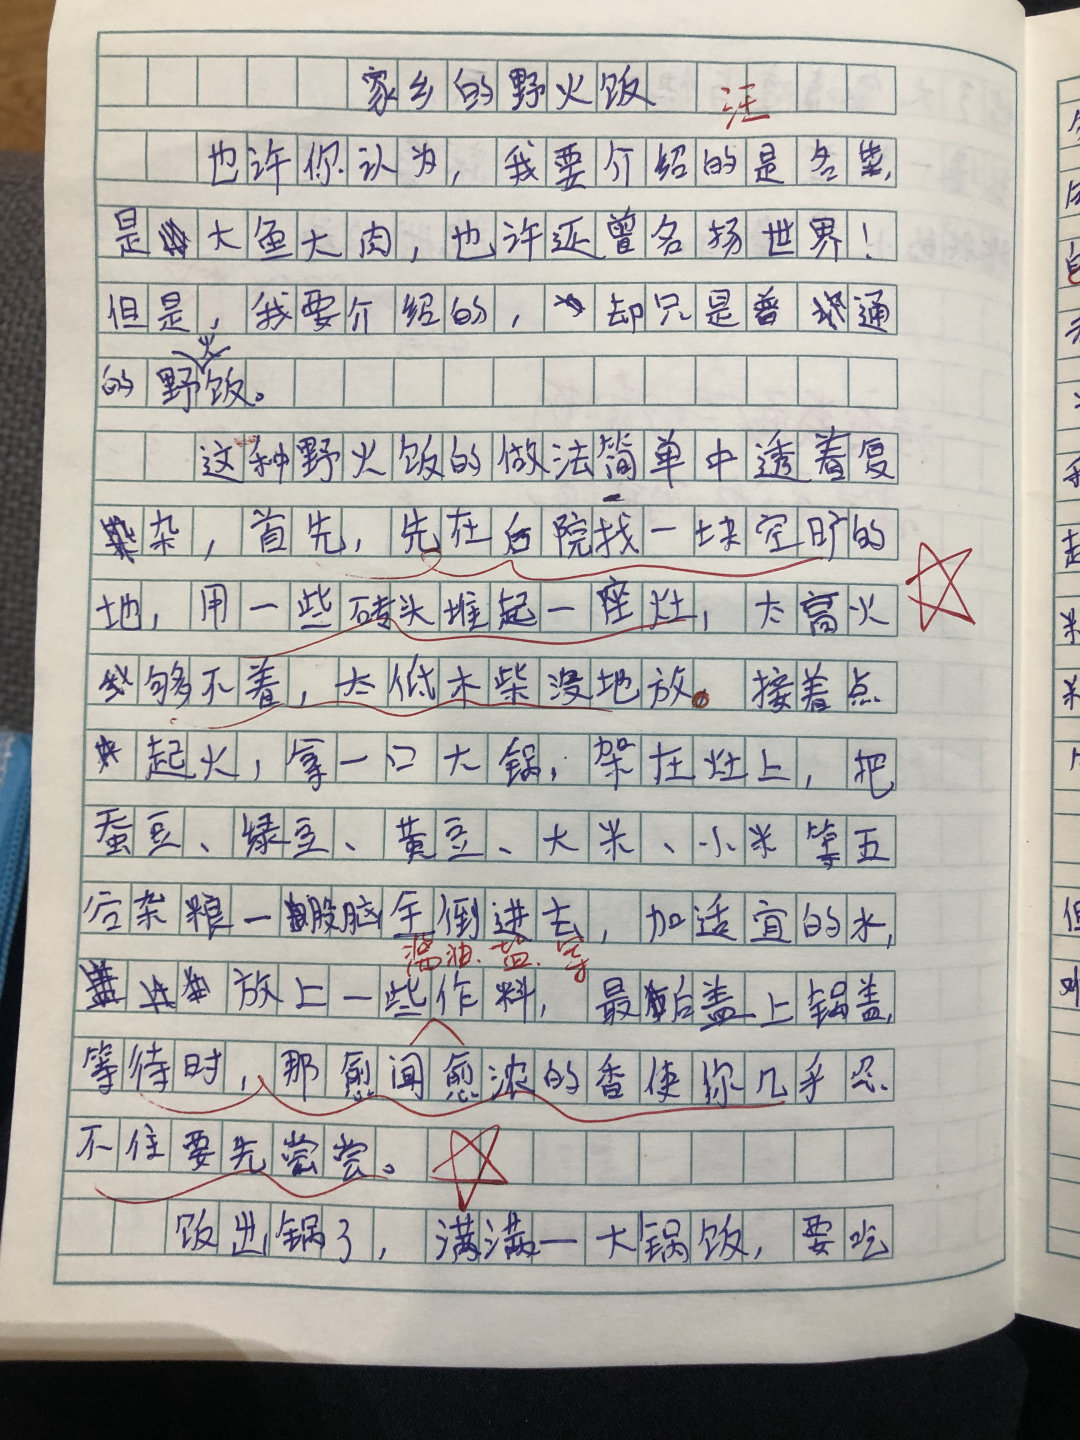 家乡的野火饭
汪
也许你认为，我要介绍的是名菜，
是大鱼大肉，也许还曾名扬世界！
但是，我要介绍的，却只是普通
的野火饭。
这种野火饭的做法简单中透着复
杂，首先，先在后院找一块空旷的
地，用一些砖头堆起一座灶，太高火
够不着，太低木柴没地放。接着点
起火，拿一口大锅，架在灶上，把
蚕豆、绿豆、黄豆、大米、小米等五
谷杂粮一股脑全倒进去，加适宜的水，
酱油、盐、等
放上一些作料，最后盖上锅盖，
等待时，那愈闻愈浓的香使你几乎忍
不住要先尝尝。
饭出锅了，满满一大锅饭，要吃